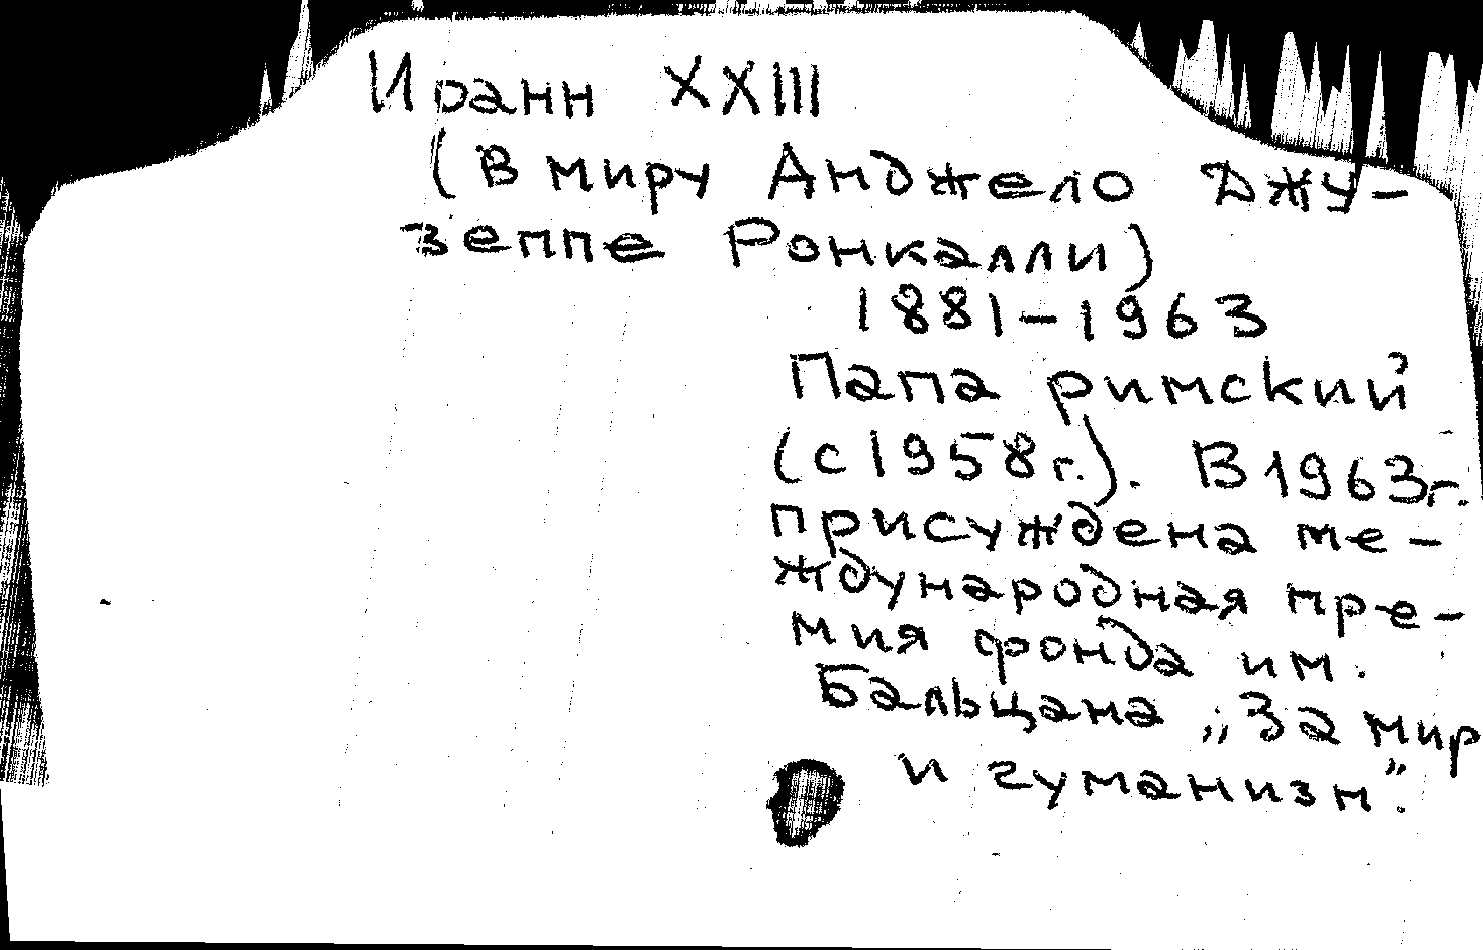 Иоанн XXIII
(в миру Анджело Джу-
зеппе Ронкалли)
1881-1963
Папа римский
(с 1958 г.). В 1963 г.
присуждена ме-
ждународная пре-
мия фонда им.
Бальцана „За мир
и гуманизм".